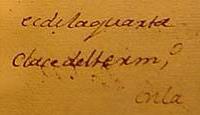 ecdelaquarta
clacedelterm,o
enla